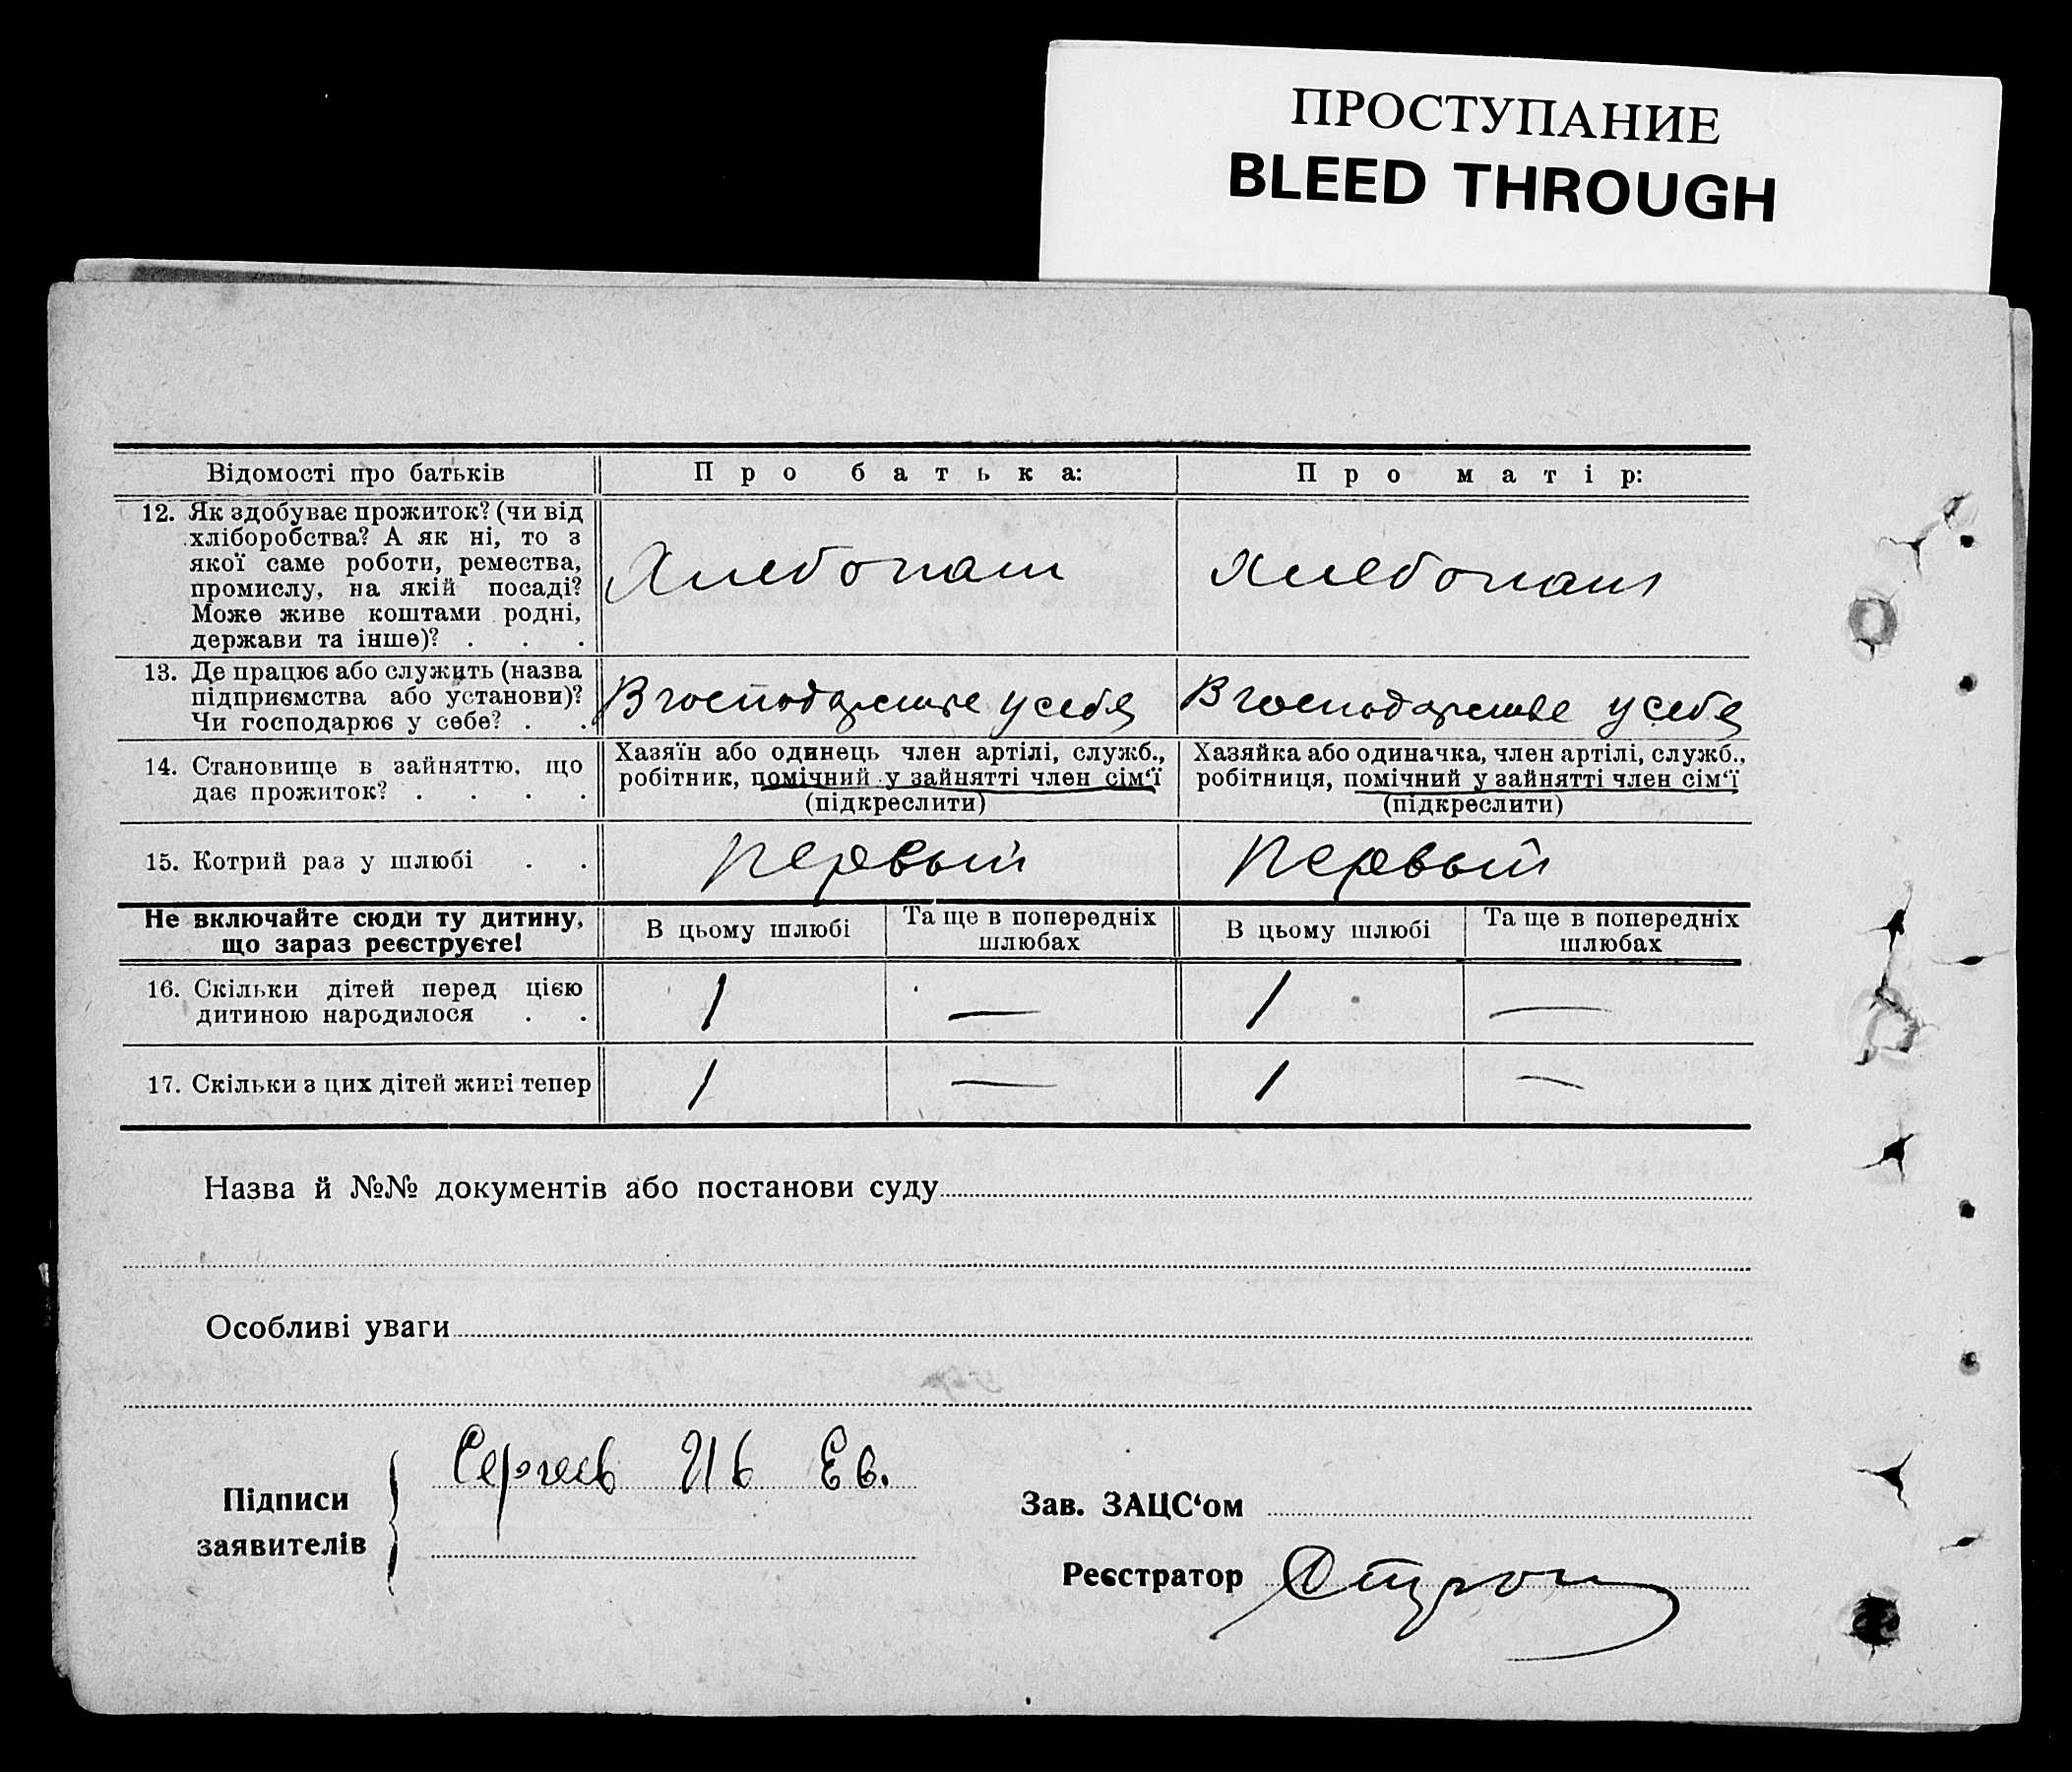 ПРОСТУПАНИЕ
BLEED THROUGH
Відомості про батьків
Про батька:
Про матір:
12. Як здобуває прожиток? (чи від
хліборобства? А як ні, то з
якої саме роботи, ремества,
промислу, на якій посаді?
Може живе коштами родні,
держави та інше)? . . .
Хлебопаш
Хлебопаш
13. Де працює або служить (назва
підприємства або установи)?
Чи господарює у себе? . .
В господарстве у себя
В господарстве у себя
14. Становище в зайняттю, що
дає прожиток? . . . .
Хазяїн або одинець член артілі, служб.,
робітник, помічний у зайнятті член сім‘ї
(підкреслити)
Хазяйка або одиначка, член артілі, служб.,
робітниця, помічний у зайнятті член сім‘ї
(підкреслити)
15. Котрий раз у шлюбі . .
первый
первый
Не включайте сюди ту дитину,
що зараз реєструєте!
В цьому шлюбі
Та ще в попередніх
шлюбах
В цьому шлюбі
Та ще в попередніх
шлюбах
16. Скільки дітей перед цією
дитиною народилося . .
1
—
1
—
17. Скільки з цих дітей живі тепер
1
—
1
—
Назва й №№ документів або постанови суду
Особливі уваги
Підписи
заявителів
Сергеев Ив Ев.
Зав. ЗАЦС‘ом
Реєстратор